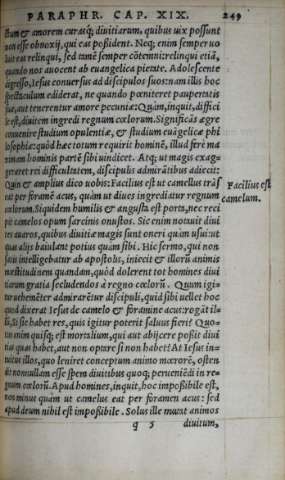 PARAPHR. CAP. XIX. 249
ctum & amorem curasq; diuitiarum, quibus uix possunt
non esse obnoxij, qui eas possident. Neq; enim semper uo
luit eas relinqui, sed tamē semper cōtemni: relinqui etiā,
quando nos auocent ab euangelica pietate. Adolescente
digresso, Iesus conuersus ad discipulos suos: nam illis hoc
spectaculum ediderat, ne quando pœniteret paupertatis
suæ, aut tenerentur amore pecuniæ: Quàm, inquit, diffici
le est, diuitem ingredi regnum cœlorum. Significās ægre
conuenire studium opulentiæ, & studium euāgelicæ phi
losophiæ: quòd hæc totum requirit hominē, illud ferè ma
ximam hominis partē sibi uindicet. Atq; ut magis exag-
geraret rei difficultatem, discipulis admirātibus adiecit:
Quin & amplius dico uobis: Facilius est ut camellus trās
eat per foramē acus, quàm ut diues ingrediatur regnum
cœlorum. Siquidem humilis & angusta est porta, nec reci
pit camelos opum sarcinis onustos. Sic enim notauit diui
tes auaros, quibus diuitiæ magis sunt oneri quàm usui: ut
quæ alijs baiulant potius quàm sibi. Hic sermo, qui non
satis intelligebatur ab apostolis, iniecit & illorū animis
mœstitudinem quandam, quòd dolerent tot homines diui
tiarum gratia secludendos à regno cœlorū. Quum igi-
tur uehemēter admirarētur discipuli, quid sibi uellet hoc
quod dixerat Iesus de camelo & foramine acus: rogāt il-
lū, si sic habet res, quis igitur poterit saluus fieri? Quo-
tus enim quisq; est mortalium, qui aut abijcere possit diui
tias quas habet, aut non optare si non habet? At Iesus in-
tuitus illos, quo leniret conceptum animo mœrorē, osten
dit nonnullam esse spem diuitibus quoq; perueniēdi in re-
gnum cœlorū. Apud homines, inquit, hoc impoßibile est,
nos minus quàm ut camelus eat per foramen acus: sed
apud deum nihil est impoßibile. Solus ille mutat animos
q 5 diuitum,
Facilius est
camelum.